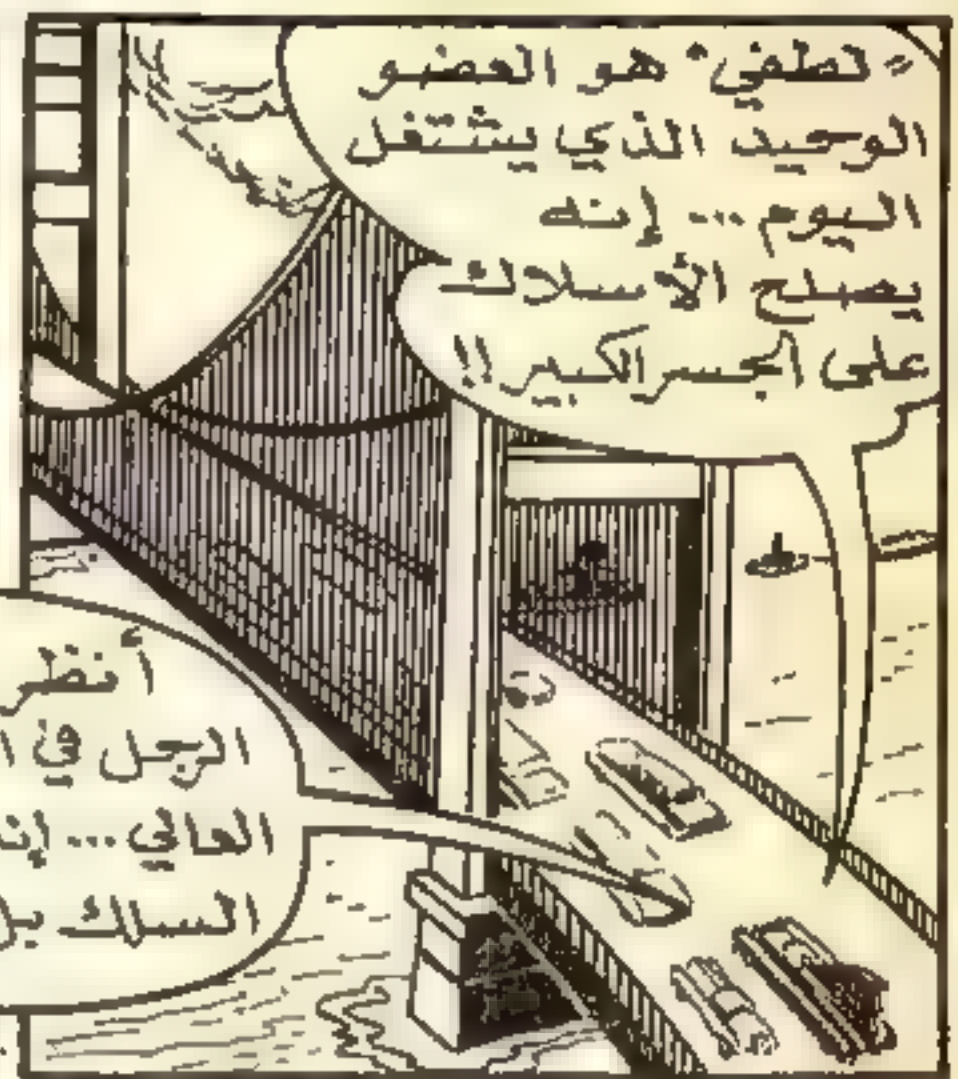 "لطفي" هو العضو
الوحيد الذي يشتغل
اليوم ... إنه
يصلح الأسلاك
على الجسر الكبير!!
أنظر
الرجل في
العالي ... إن
السلك